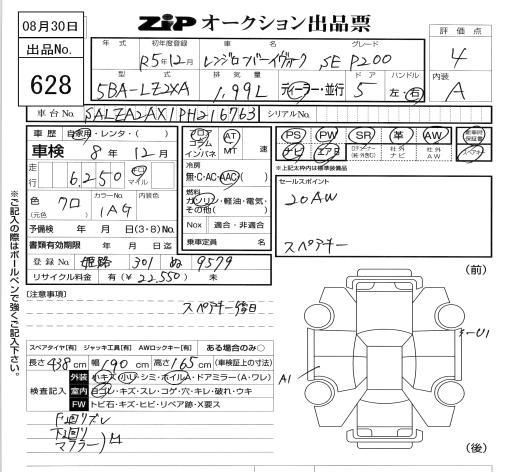 08月30日
出品No.
628
ZIP オークション出品票
評価点
4
内装
A
年式 初年度登録 車名 グレード
R5年12月 レンジローバーイヴォーク SE P200
型式 排気量 ドア ハンドル
5BA-LZ2XA 1.99L ディーラー・並行 5 左・右
車台No. SALZA2AX1PH216763 シリアルNo.
車歴 自家用・レンタ・( )
車検 8年12月
走行 6,250 km マイル
色 クロ (元色) カラーNo. 1AG 内装色
予備検 年 月 日(3・8)No.
書類有効期限 年 月 日迄
登録No. 姫路 301 ぬ 9579
リサイクル料金 有(¥22,550) 未
フロア コラム インパネ AT MT 速
冷房
無・C・AC・AAC
燃料
ガソリン・軽油・電気・その他( )
Nox 適合・非適合
乗車定員 名
PS PW SR 革 AW 新車時保証書
ナビ エアB 社外ナビ 社外AW スペアキー
※上記太枠内は標準装備品
セールスポイント
20AW
スペアキー
[注意事項]
スペアキー後日
スペアタイヤ[有] ジャッキ工具[有] AWロックキー[有] ある場合のみ〇
長さ438cm 幅190cm 高さ165cm (車検証上の寸法)
検査記入
外装 小キズ・小凹・シミ・ホイルA・ドアミラー(A・ワレ)
室内 ヨゴレ・キズ・スレ・コゲ・穴・キレ・破れ・ウキ
FW トビ石・キズ・ヒビ・リペア跡・X要ス
下回り
マフラー
(前)
A1
U1
(後)
※ご記入の際はボールペンで強くご記入下さい。